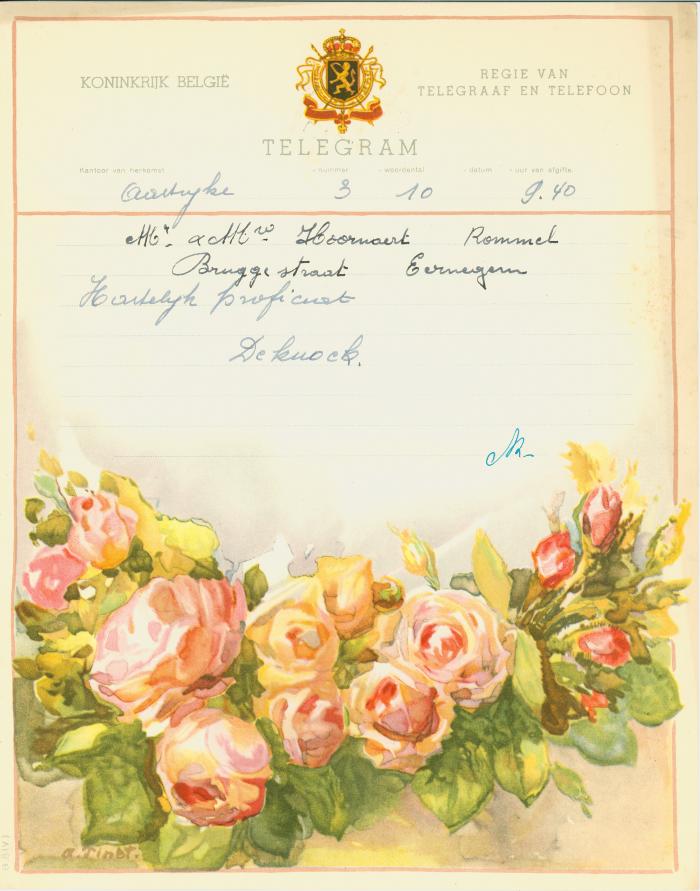 KONINKRIJK BELGIË
REGIE VAN
TELEGRAAF EN TELEFOON
TELEGRAM
Kantoor van herkomst - nummer - woordental - datum - uur van afgifte.
Aartryke 3 10 9.40
Mr. & Mvw Hoornaert Rommel
Bruggestraat Eernegem
Hartelyk proficiat
Deknock.